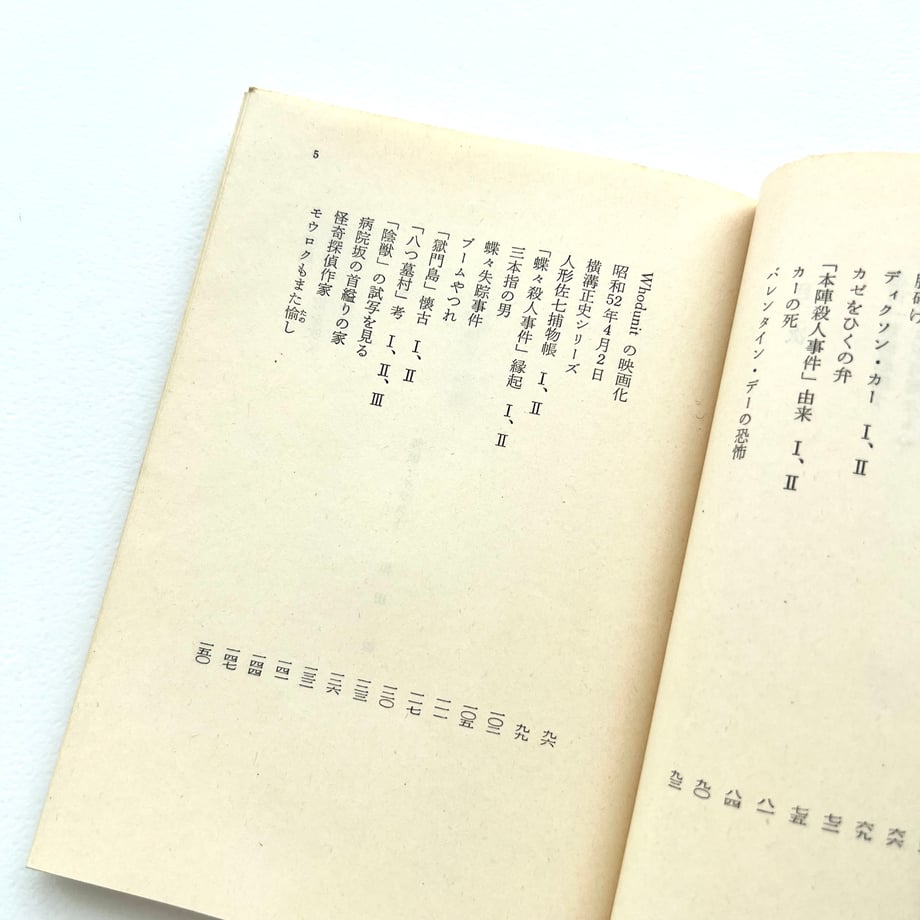 ディクソン・カー Ⅰ、Ⅱ 七五
カゼをひくの弁 八一
「本陣殺人事件」由来 Ⅰ、Ⅱ 八四
カーの死 九〇
バレンタイン・デーの恐怖 九三
Whodunit の映画化 九六
昭和52年4月2日 九九
横溝正史シリーズ 一〇二
人形佐七捕物帳 Ⅰ、Ⅱ 一〇五
「蝶々殺人事件」縁起 Ⅰ、Ⅱ 一一一
三本指の男 一一七
蝶々失踪事件 一二〇
ブームやつれ 一二三
「獄門島」懐古 Ⅰ、Ⅱ 一二六
「八つ墓村」考 Ⅰ、Ⅱ、Ⅲ 一三二
「陰獣」の試写を見る 一四一
病院坂の首縊りの家 一四四
怪奇探偵作家 一四七
モウロクもまた愉し 一五〇
たの
5